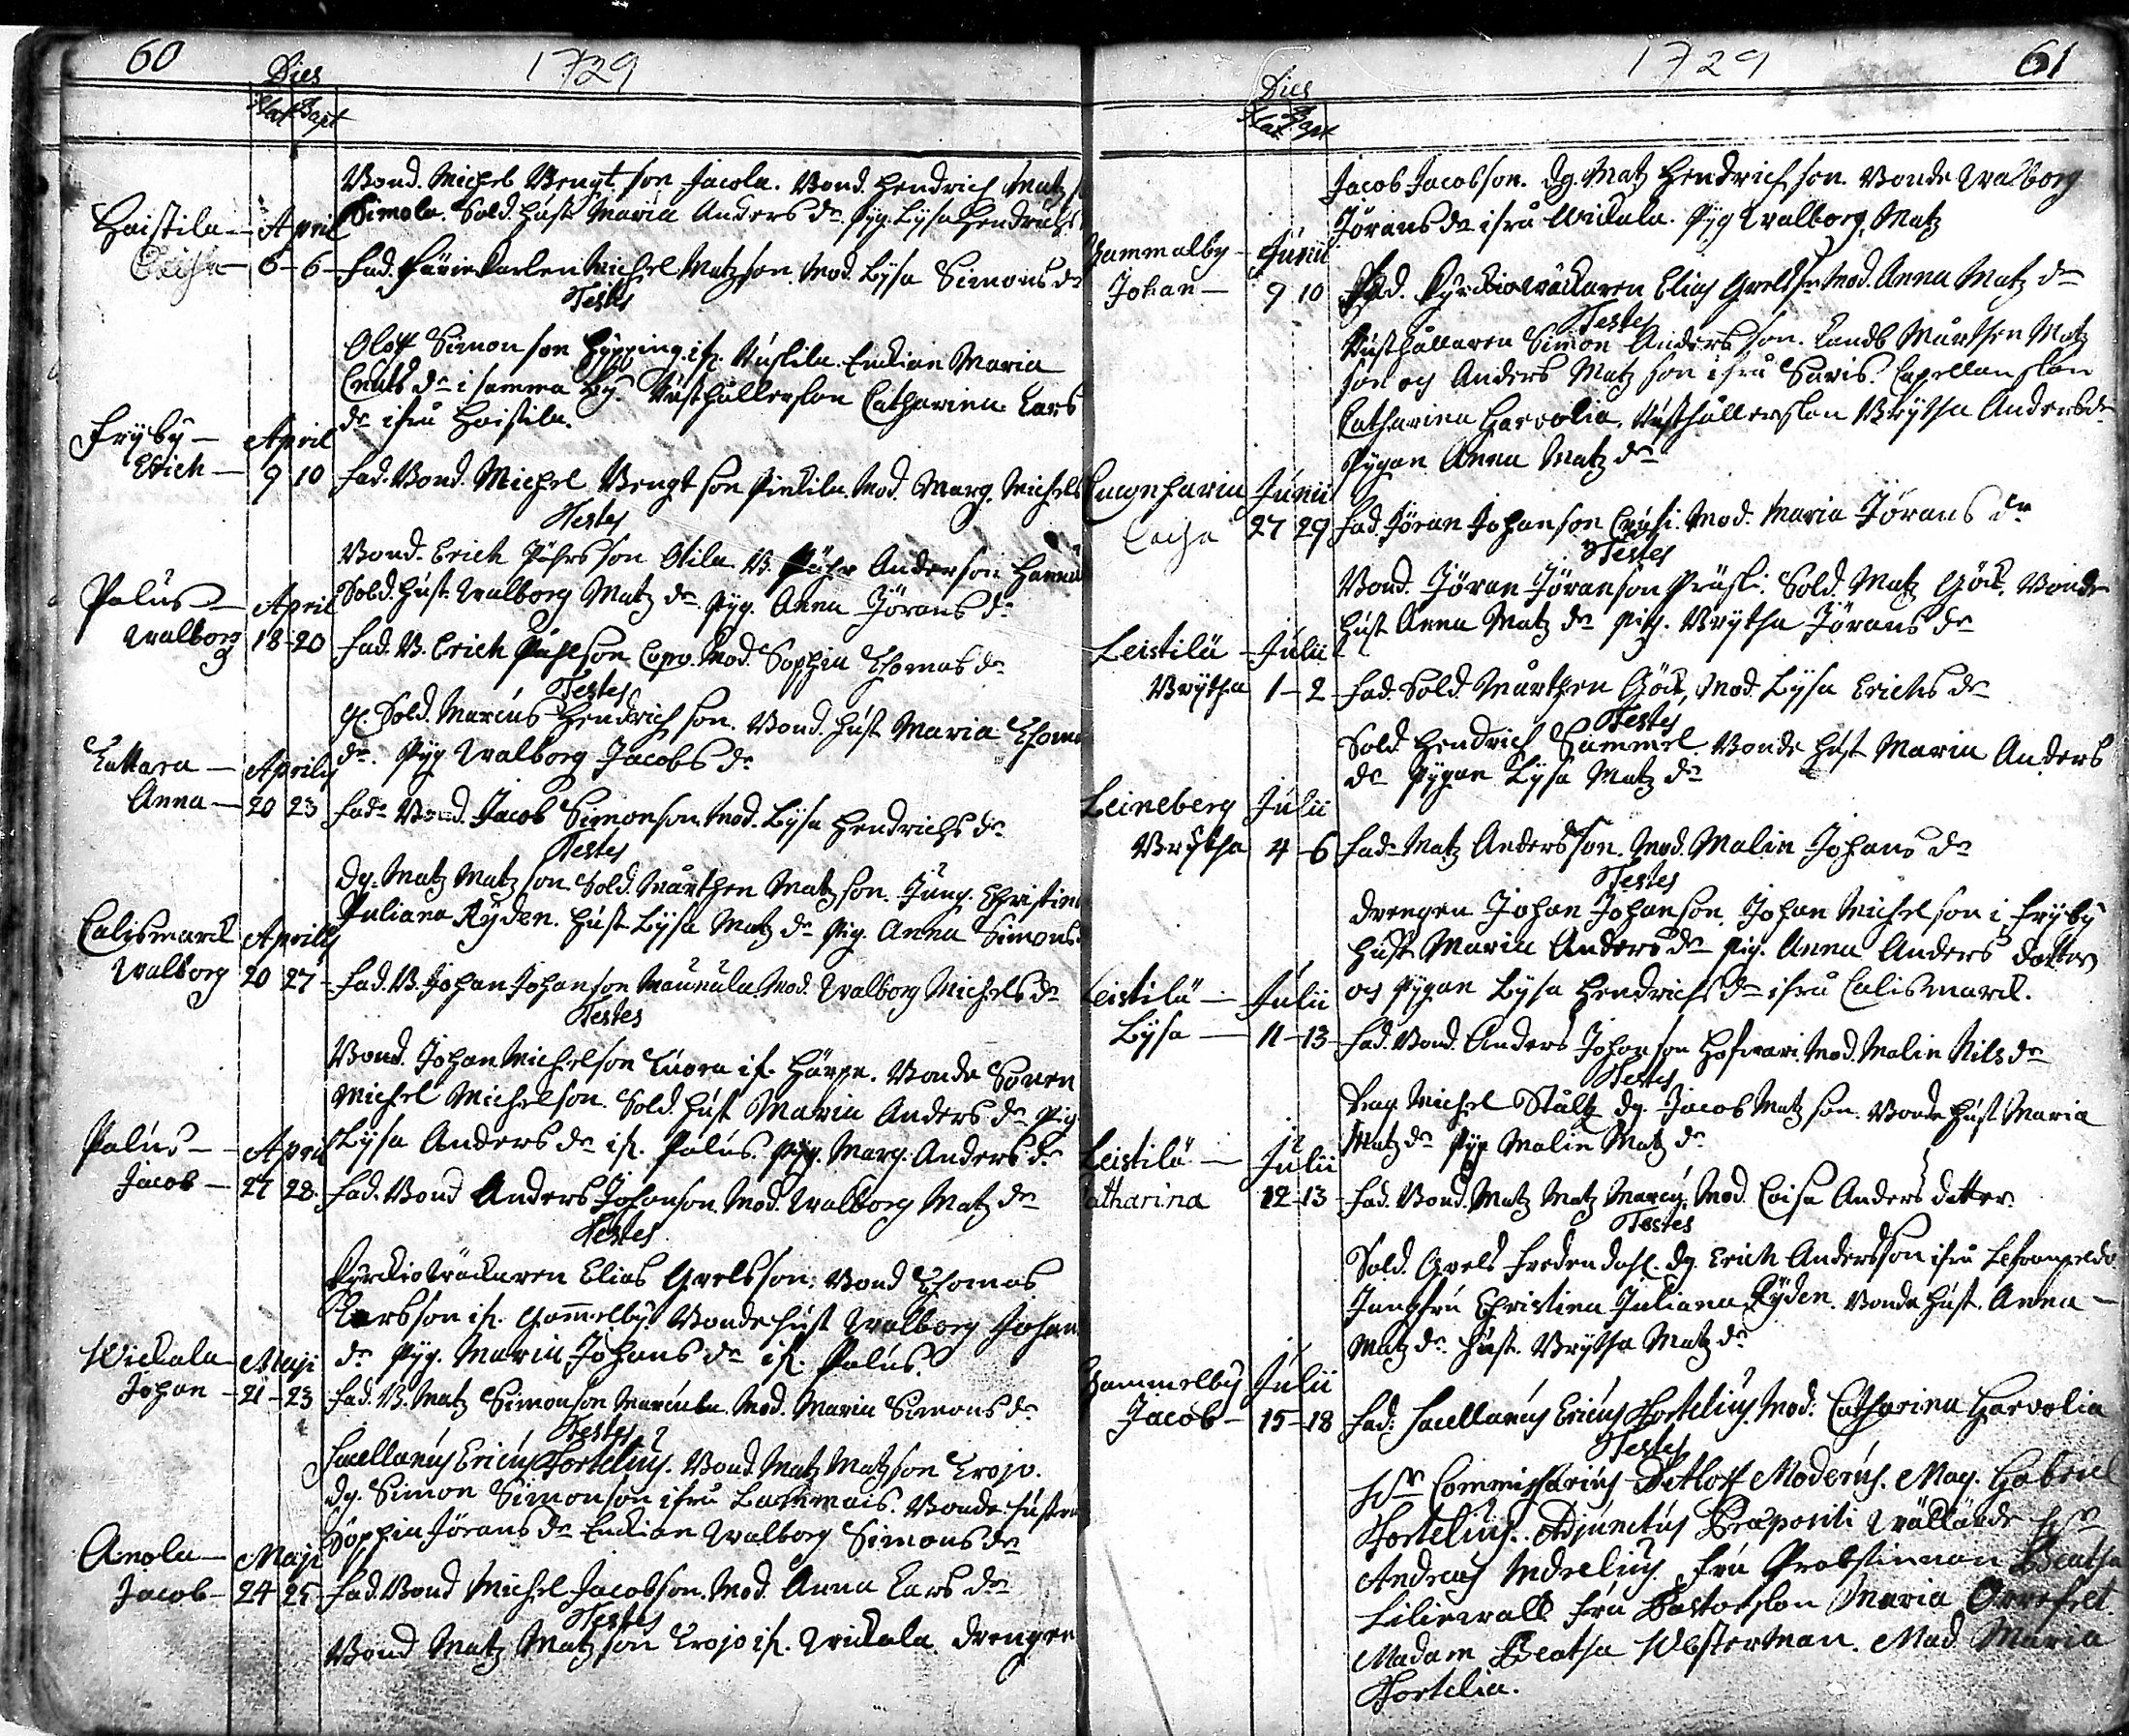 60
1729
Dies
Nat Bapt
Bond. Michel Bengt son Jacola. Bond. Hendrich Matz
Simola. Sold. hust. Maria Anders dr. Pyg. Lysa Hendrichs
Haistila April
6 6 Fad. Michel Matzson. Mod. Lysa Simons dr
Testes
Oloff Simon son Hypping if. Enkian Maria
dr i samma by. Rusthållerskan Catharina Lars
dr ifrå Haistila.
Fryby April
Erich 9 10 Fad. Bond. Michel Bengt son Pietila. Mod. Marg. Michels
Testes
Bond. Erich son Otila. B. Anderson
Sold. hust. Walborg Matz dr Pyg. Anna Jörans dr
Palus April
Walborg 18 20 Fad. B. Erich Påhlson Mod. Sophia Thomas dr
Testes
Gl. Sold. Marcus Hendrich son. Bond. hust. Maria Thoma
dr. Pyg Walborg Jacobs dr
Kattara Aprilis
Anna 20 23 Fadr Bond. Jacob Simonson. Mod. Lysa Hendrichs dr
Testes
Dg. Matz Matz son. Sold. Mårthen Matz son. Jung. Christina
Juliana Ryden. Hust. Lysa Matz dr Pig. Anna Simons
Calismarck Aprilis
Walborg 20 27 Fad. B. Johan Johanson Mod. Walborg Michels dr
Testes
Bond. Johan Michelson if. Härpe. Bonde Sonen
Michel Michelson. Sold. hust Maria Anders dr Pig
Lysa Anders dr if. Palus. Pyg. Marg. Anders dr
Palus April
Jacob 27 28. Fad. Bond Anders Johanson. Mod. Walborg Matz dr
Testes
Kyrckioväckaren Elias Grelsson. Bond Thomas
Larsson if. Gammelby. Bonde hust Walborg Johan
dr Pyg. Maria Johans dr if. Palus.
Wickala Maji
Johan 21 23 Fad. B. Matz Simonson Mod. Maria Simons dr
Testes
Sacellanus Ericus Hortelius. Bond. Matz Matzson Krojo.
Dg. Simon Simonson ifrå Lammais. Bonde hustru
Sophia Jörans dr Enkian Walborg Simons dr
Anola Maji
Jacob 24 25 Fad. Bond Michel Jacobson. Mod. Anna Lars dr
Testes
Bond Matz Matzson Krojo if. Wickala. Drengen
1729
61
Dies
Nat Bapt
Jacob Jacobson. Dg. Matz Hendrich son. Bonde Walborg
Jörans dr ifrå Wickala. Pyg Walborg. Matz
Gammalby Junii
Johan 9 10 Fad. Kyrckioväckaren Elias Grelsson Mod. Anna Matz dr
Testes
Rusthållaren Simon Anders son. Landb Mårthen Matz
son och Anders Matz son ifrå Suris. Capellanskan
Catharina Harvolia. Rusthållerskan Brytha Anders dr
Pygan Anna Matz dr
Junii
27 29 Fad. Jöran Johanson Mod. Maria Jörans dr
Testes
Bond. Jöran Jöranson Pruski. Sold. Matz Göck. Bonde
hust Anna Matz dr Pig. Brytha Jörans dr
Leistilä Julii
Brytha 1 2 Fad. Sold. Mårthen Göck, Mod. Lysa Erichs dr
Testes
Sold Hendrich Sammel. Bonde hust Maria Anders
dr Pygan Lysa Matz dr
Leineberg Julii
Brytha 4 6 Fadr Matz Andersson. Mod. Malin Johans dr
Testes
Drengen Johan Johanson. Johan Michelson i Fryby
hust. Maria Anders dr Pig. Anna Anders dotter
och Pygan Lysa Hendrichs dr ifrå Calismarck.
Leistilä Julii
Lysa 11 13 Fad. Bond. Anders Johanson Mod. Malin Nils dr
Testes
Drag. Michel Stålt. Dg. Jacob Matz son. Bonde hust Maria
Matz dr Pyg Malin Matz dr
Leistilä Julii
Catharina 12 13 Fad. Bond. Matz Matz Mod. Caisa Anders datter.
Testes
Sold. Grels Fredendahl. Dg. Erich Andersson ifrå
Jungfru Christina Juliana Ryden. Bonde hust. Anna
Matz dr. Hust. Brytha Matz dr
Gammelby Julii
Jacob 15 18 Fad. Sacellanus Ericus Hortelius. Mod. Catharina Harvolia
Testes
Hr Commissarius Ditloff Moderus. Mag. Gabriel
Hortelius. Adjunctus Præpositi Wällärde Hr
Andreas Indrelius. Fru Probstinnan Beatha
Liliewall Fru Pastorskan Maria Orrefelt.
Madam Beatha Westerman. Mad Maria
Hortelia.